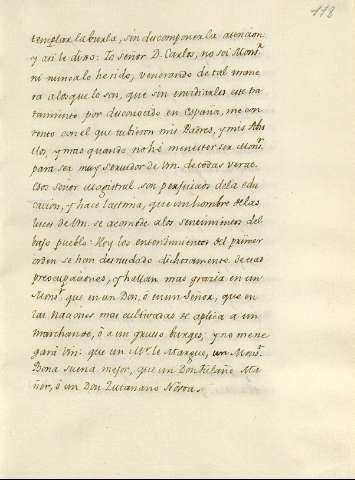 118
templar la burla, sin descomponer la atencion
y asi le dixo: Yo señor D. Carlos, no soi Mons.r
ni nunca lo he sido, venerando de tal mane
ra a los que lo son, que sin envidiarles este tra
tamiento por desconocido en España, me con
tento con el que tubieron mis Padres, y mis Abu
los, y mas quando no hé menester ser Mons.r
para ser muy servidor de Vm. de todas veras.
Esos señor Magistral son perjuicios dela edu
cacion, y hace lastima, que un hombre de las
luces de Vm. se acomode alos sentimientos del
bajo pueblo: Hoy los entendimientos del primer
orden se han desnudado dichosamente de esas
preocupaciones, y hallan mas gracia en un
Mons.r que en un Don, ò en un Señor, que en
las naciones mas cultivadas se aplica a un
marchande, ò a un grueso burges; y no me ne
gará Vm. que un M.r le Marque, un Mons.r
Bona suena mejor, que un Don Fulano Ma
ñer, ò un Don Zutanano Nosou.